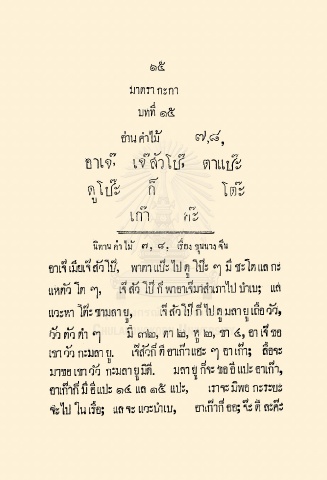 ๑๕
มาตรา กะกา
บทที่ ๑๕
อ่าน คำไม้ ๗,๘,
อาเจ๊, เจ๊สัวโป๊, ตาแป๊ะ
ดูโป๊ะ ก็ โต๊ะ
เก๊า ค๊ะ
นิทาน คำไม้ ๗, ๘, เรื่อง ขุนนางจีน
อาเจ๊ เมียเจ๊สัวโป๊, พาตาแป๊ะไปดูโป๊ะ ๆ มี ชะโด แล กะ
แหตัว โต ๆ, เจ๊สัวโป๊ ก็ พาอาเจ๊มาสำเภาไป บำเบ; แล่
แวะหา โต๊ะ ชามลายู, เจ๊สัวโป๊ ก็ ไป ดู มลายู เถือ วัว,
วัว ตัว ดำ ๆ มี ๓๒, ตา ๒, หู ๒, ขา ๔, อาเจ๊ ขอ
เขา วัว กะ มลายู. เจ๊สัวก็ ตี อาเก๊าแฮะ ๆ อาเก๊า; ลื้อจะ
มาขอ เขา วัว กะมลายูมิดี. มลายู ก็จะ ขอ อีแปะ อาเก๊า,
อาเก๊าก็ มี อีแปะ ๑๔ แล ๑๕ แปะ, เราจะมิพอ กะระยะ
จะไป ใน เรือ; แล จะ แวะบำเบ, อาเก๊าก็ ออ; จ๊ะ ดี ละค๊ะ